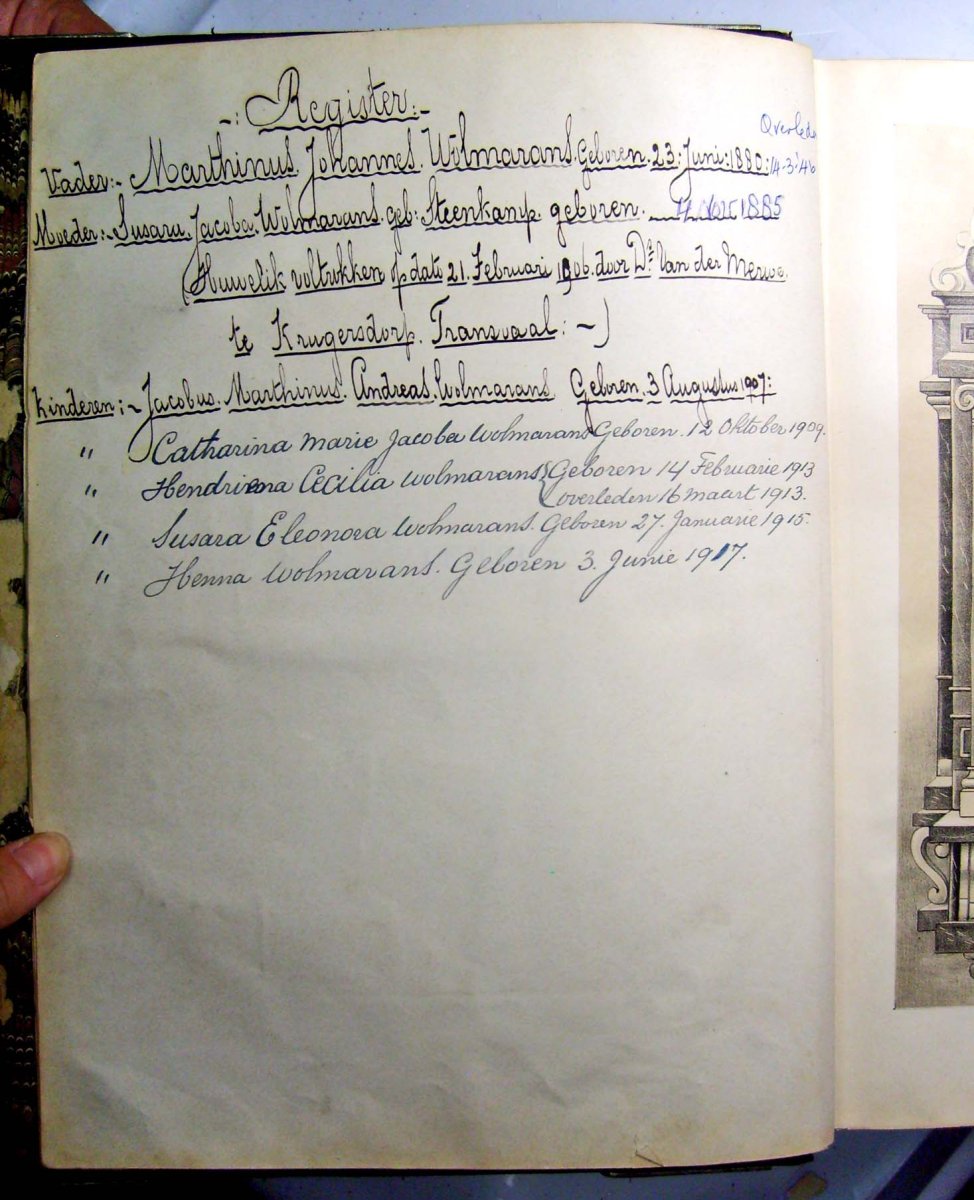 -: Register :-
Overleden
Vader:- Marthinus. Johannes. Wolmarans. Geboren. 23. Juni: 1880: 14-3-'46
Moeder:- Susara. Jacoba. Wolmarans. geb: Steenkamp. geboren. 11 Nov 1885
(Huwelik voltrokken op dato 21. Februari 1906. door Ds. Van der Merwe.
te Krugersdorp. Transvaal: -)
Kinderen:- Jacobus. Marthinus. Andreas. Wolmarans. Geboren. 3 Augustus 1907:
" Catharina Marie Jacoba Wolmarans Geboren. 12 Oktober 1909.
" Hendriena Cecilia Wolmarans { Geboren 14 Februarie 1913
overleden 16 maart 1913.
" Susara Eleonora Wolmarans. Geboren 27. Januarie 1915.
" Henna Wolmarans. Geboren 3. Junie 1917.